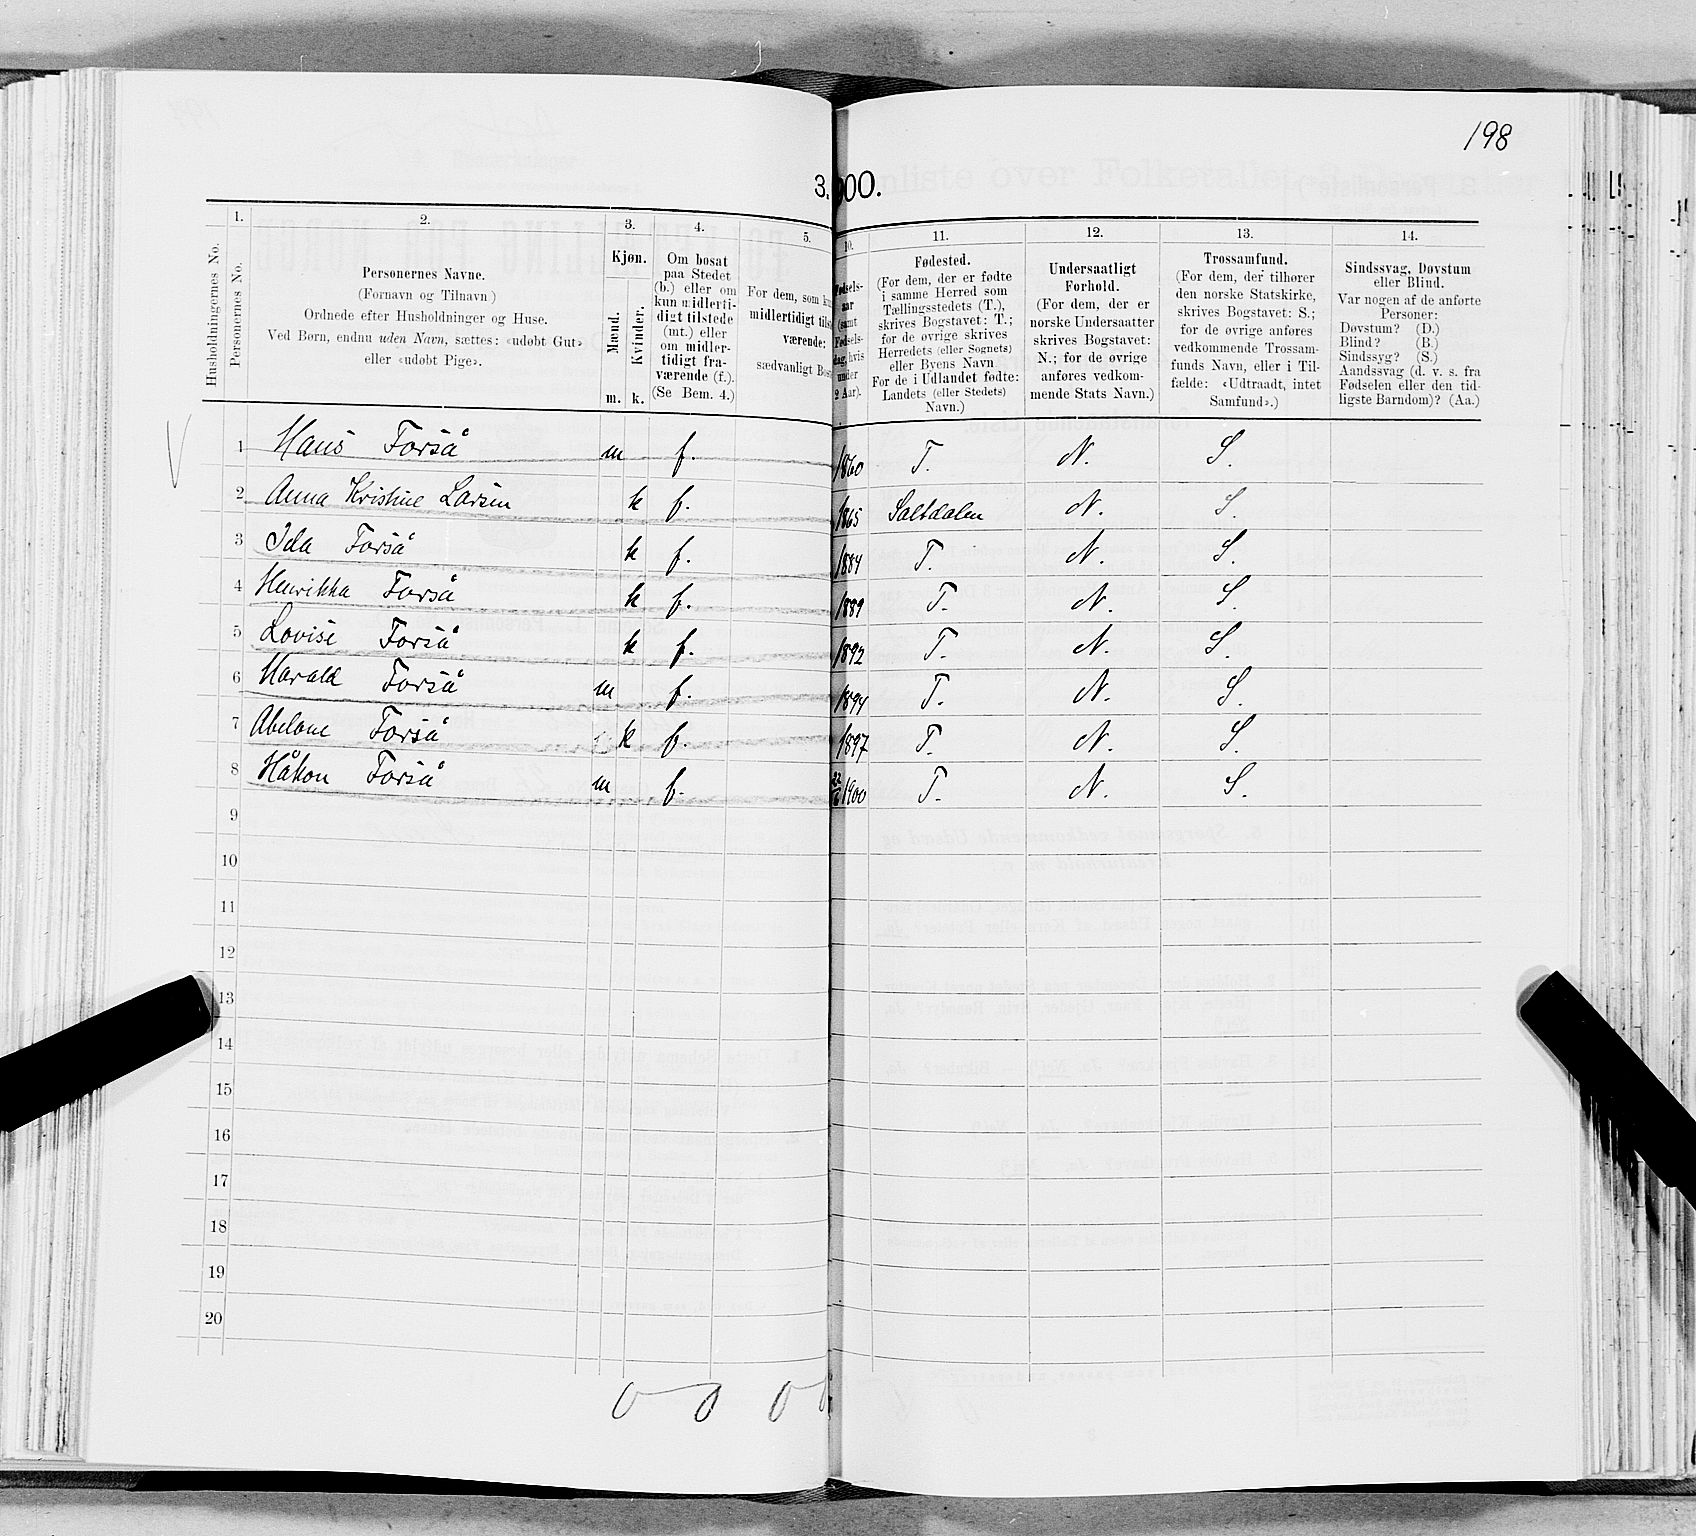 198
3. 00.
1. 2. 3. 4. 5. 10. 11. 12. 13. 14.
Husholdningernes No.
Personernes No.
Personernes Navne.
(Fornavn og Tilnavn)
Ordnede efter Husholdninger og Huse.
Ved Børn, endnu uden Navn, sættes: «udøbt Gut»
eller «udøbt Pige».
Kjøn.
Mænd.
Kvinder.
m. k.
Om bosat
paa Stedet
(b.) eller om
kun midlerti-
digt tilstede
(mt.) eller
om midler-
tidigt fra-
værende (f.).
(Se Bem. 4.)
For dem, som
midlertidigt
værende:
sædvanligt
hvis
under
2 Aar).
Fødested.
(For dem, der er fødte
i samme Herred som
Tællingsstedets (T.),
skrives Bogstavet: T.;
for de øvrige skrives
Herredets (eller Sognets)
eller Byens Navn
For de i Udlandet fødte:
Landets (eller Stedets)
Navn.)
Undersaatligt
Forhold.
(For dem, der er
norske Undersaatter
skrives Bogstavet:
N.; for de øvrige
anføres vedkom-
mende Stats Navn.)
Trossamfund.
(For dem, der tilhører
den norske Statskirke,
skrives Bogstavet: S.;
for de øvrige anføres
vedkommende Trossam-
funds Navn, eller i Til-
fælde: «Udtraadt, intet
Samfund».)
Sindssvag, Døvstum
eller Blind.
Var nogen af de anførte
Personer:
Døvstum? (D.)
Blind? (B.)
Sindssyg? (S.)
Aandssvag (d. v. s. fra
Fødselen eller den tid-
ligste Barndom)? (Aa.)
1 Hans Forså m f. 1860 T. N. S.
2 Anna Kristine Larsen k f. 1865 Saltdalen N. S.
3 Ida Forså k f. 1884 T. N. S.
4 Henrikka Forså k f. 1889 T. N. S.
5 Lovise Forså k f. 1892 T. N. S.
6 Harald Forså m f. 1894 T. N. S.
7 Abelone Forså k f. 1897 T. N. S.
8 Håkon Forså m f. 1900 T. N. S.
9
10
11
12
13
14
15
16
17
18
19
20
0 0 0 0